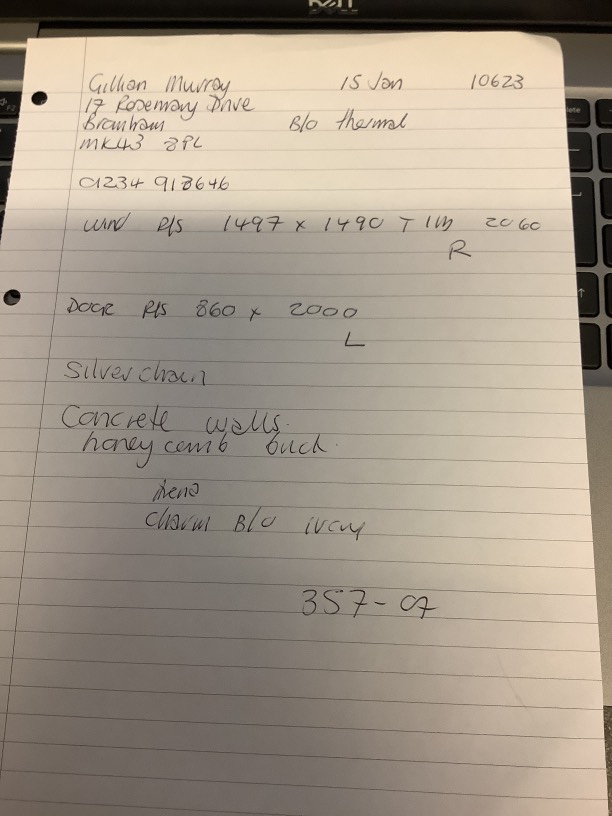 Gillian Murray 15 Jan 10623
17 Rosemary Drive
Bromham B/o thermal
MK43 8PL
01234 913646
wind R/S 1497 x 1490 T 2060
R
DOOR R/S 860 x 2000
L
Silver chain
Concrete walls.
honey comb
Charm B/O ivory
357-07